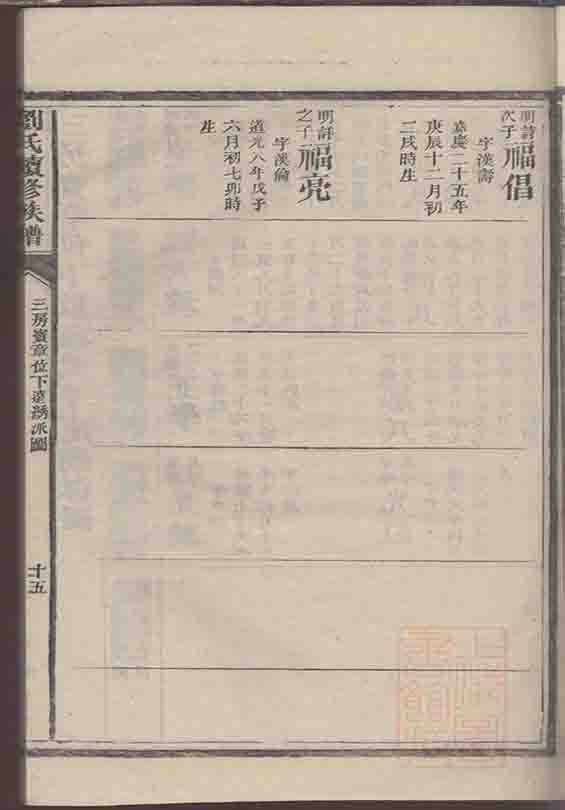 明詩次子
福倡
字漢壽
嘉慶二十五年
庚辰十二月初
二戌時生
明詩之子
福亮
字漢倫
道光八年戊子
六月初七卯時
生
劉氏續修族譜
三房賓章位下達派圖
十五